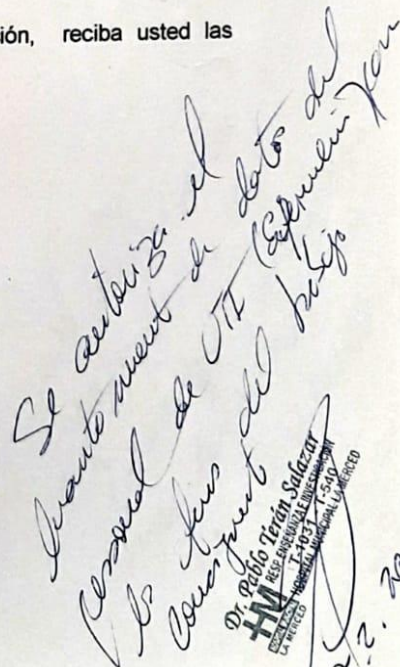 ión, reciba usted las
Se autoriza el
levantamient de datos del
personal de UTI (Enfermería) con
los fines del
consiguient del trabajo
Dr. Pablo Terán Salazar
RESP. ENSEÑANZA E INVESTIGACIÓN
HM
HOSPITAL MUNICIPAL LA MERCED
LA MERCED